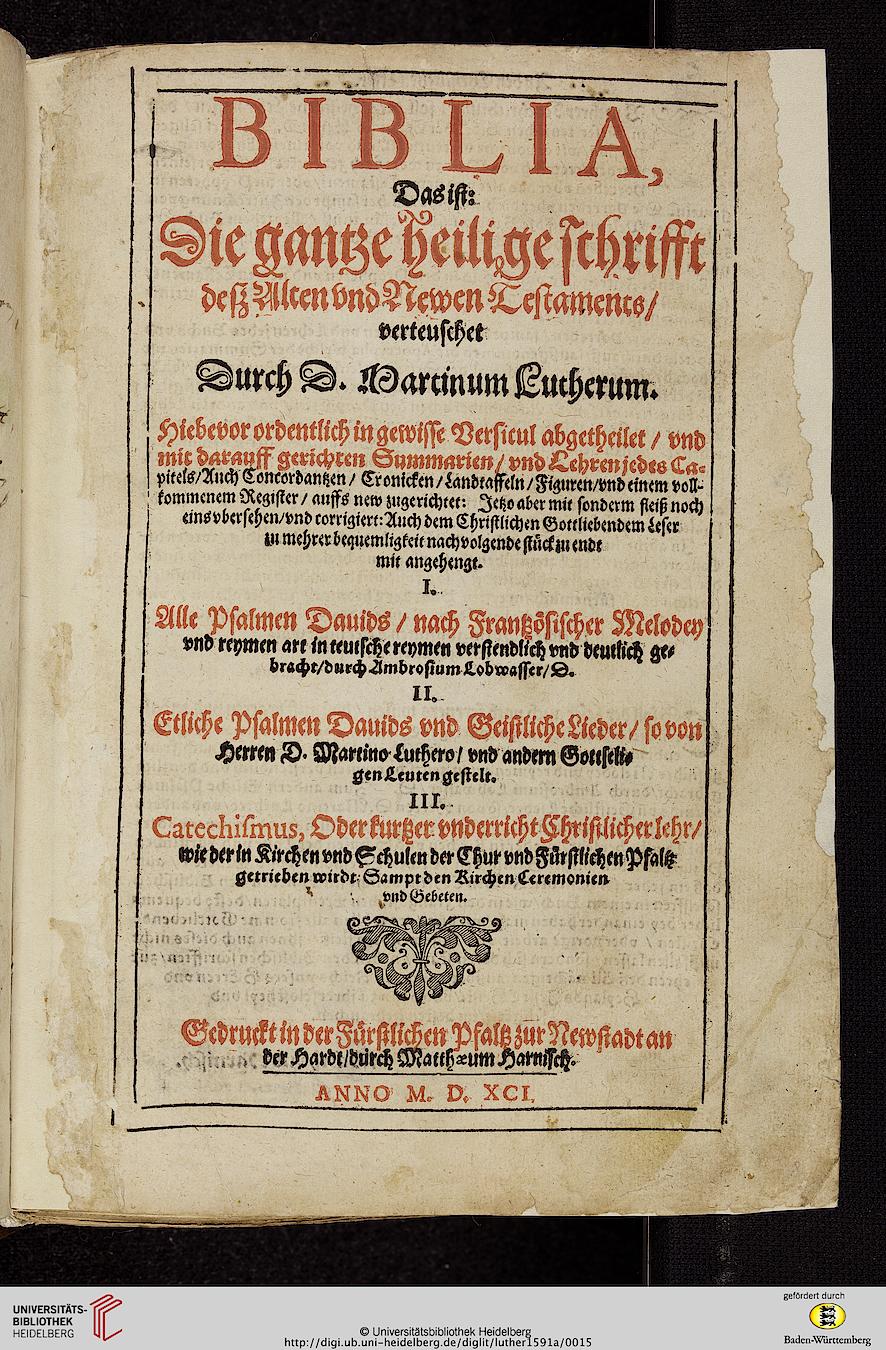 BIBLIA,
Das ist:
Die gantze heilige schrifft
deß Alten vnd Newen Testaments/
verteuschet
Durch D. Martinum Lutherum.
Hiebevor ordentlich in gewisse Versicul abgetheilet / vnd
mit darauff gerichten Summarien / vnd Lehren jedes Ca-
pitels/Auch Concordantzen / Cronicken / Landtaffeln / Figuren/vnd einem voll-
kommenem Register / auffs new zugerichtet: Jetzo aber mit sonderm fleiß noch
eins vbersehen/vnd corrigiert: Auch dem Christlichen Gottliebendem Leser
zu mehrer bequemligkeit nachvolgende stück zu endt
mit angehengt.
I.
Alle Psalmen Dauids / nach Frantzösischer Melodey
vnd reymen art in teutsche reymen verstendlich vnd deutlich ge-
bracht/durch Ambrosium Lobwasser/D.
II.
Etliche Psalmen Dauids vnd Geistliche Lieder/ so von
Herren D. Martino Luthero/ vnd andern Gottseli-
gen Leuten gestelt.
III.
Catechismus, Oder kurtzer vnderricht Christlicher lehr/
wie der in Kirchen vnd Schulen der Chur vnd Fürstlichen Pfaltz
getrieben wirdt: Sampt den Kirchen Ceremonien
vnd Gebeten.
Gedruckt in der Fürstlichen Pfaltz zur Newstadt an
der Hardt/durch Matthæum Harnisch.
ANNO M. D. XCI.
UNIVERSITÄTS-
BIBLIOTHEK
HEIDELBERG
© Universitätsbibliothek Heidelberg
http://digi.ub.uni-heidelberg.de/diglit/luther1591a/0015
gefördert durch
Baden-Württemberg